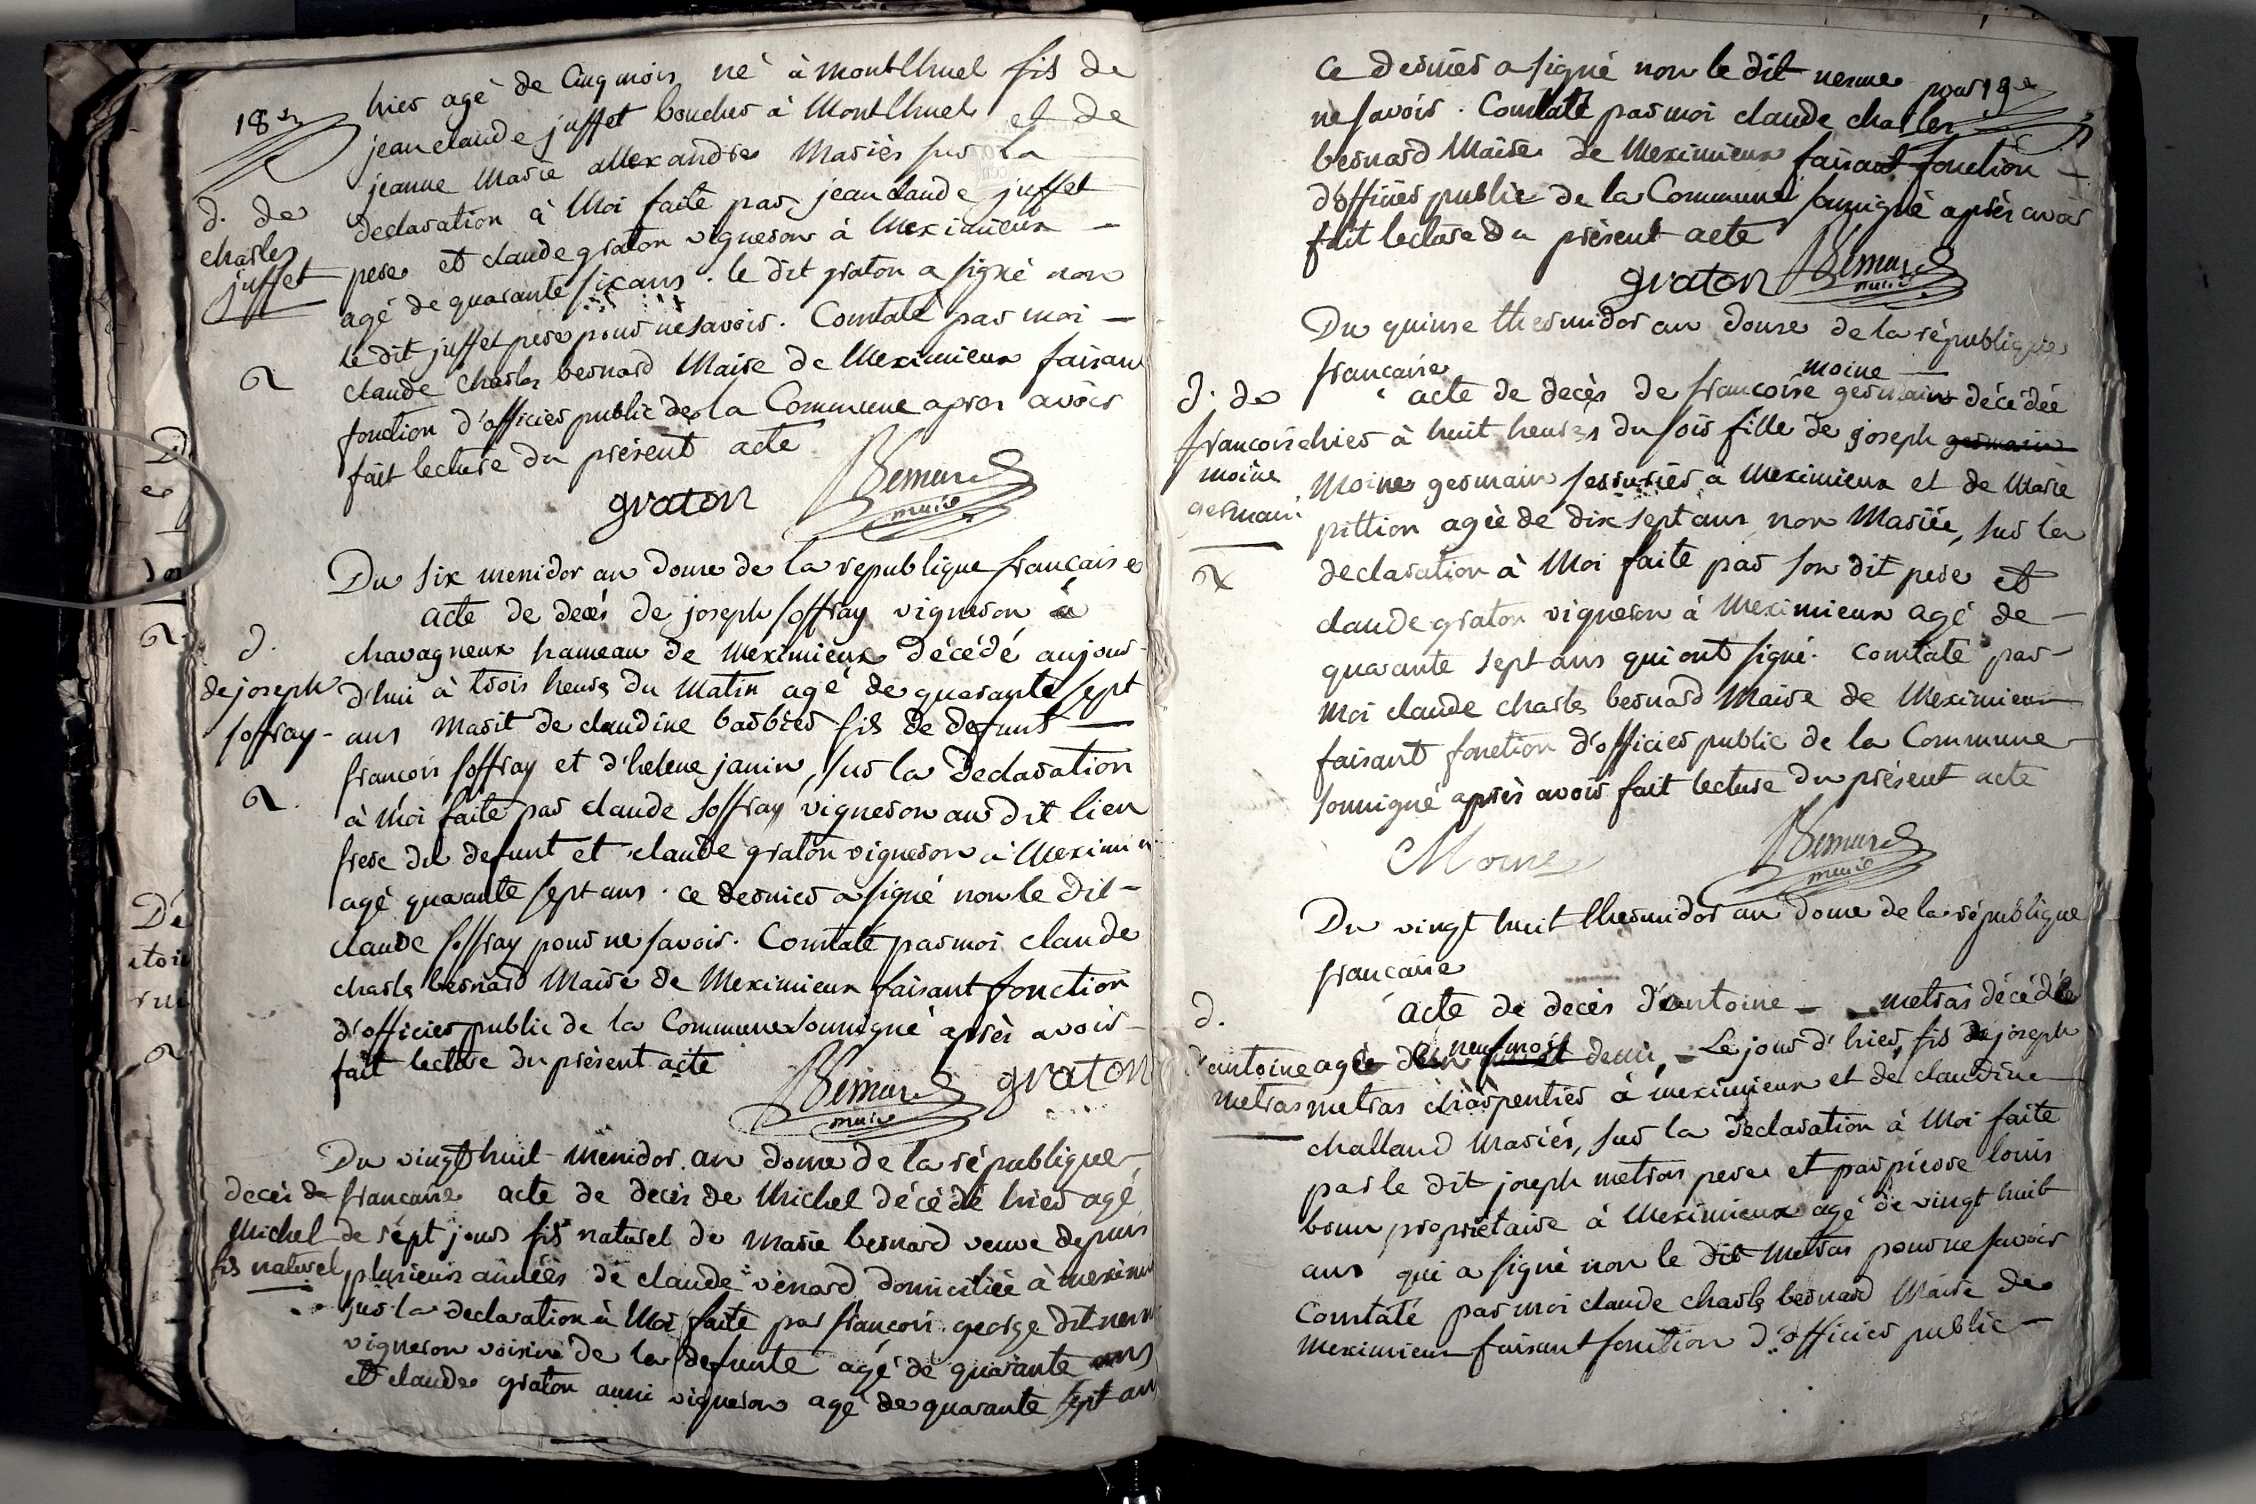 18e
hier agé de Cinq mois, né à Montlhuel fils de
jean claude juffet boucher à Montlhuel et de
jeanne Marie allexandre Mariés sur la
d. de
charles
juffet
declaration à Moi faite par jean claude juffet
pere et claude graton vigneron à Meximieux
agé de quarante six ans. le dit graton a signé non
le dit juffet pere pour ne savoir. Constaté par moi
claude charles bernard Maire de Meximieux faisant
fonction d'officier public de la Commune apres avoir
fait lecture du présent acte
graton Bernard
maire
Du six messidor an douse de la republique française
acte de decès de joseph soffray vigneron à
d.
de joseph
soffray
chavagneux hameau de Meximieux décédé aujour-
d'hui à trois heures du Matin agé de quarante sept
ans Marit de claudine barbier fils de defunt
francois soffray et d'helene janin, sur la declaration
à Moi faite par claude soffray vigneron au dit lieu
frere du defunt et claude graton vigneron à Meximi
agé quarante sept ans. ce dernier a signé non le dit
claude soffray pour ne savoir. Constaté par moi claude
charles bernard Maire de Meximieux faisant fonction
d'officier public de la Commune soussigné après avoir
fait lecture du présent acte
Bernard graton
maire
Du vingt huit messidor an douse de la république
decès de
Michel
fils naturel
francaise acte de decès de Michel décédé hier agé
de sept jours fils naturel de Marie bernard veuve depuis
plusieurs années de claude vénard domiciliée à mexim
sur la declaration à Moi faite par francois george dit
vigneron voisin de la defunte agé de quarante ans
et claude graton aussi vigneron agé de quarante sept an
19e
ce dernier a signé non le dit pour
ne savoir. Constaté par moi claude charles
bernard Maire de Meximieux faisant fonction
d'officier public de la Commune soussigné après avoir
fait lecture du présent acte
graton Bernard
maire
Du quinse thermidor an douse de la république
francaise
d. de
francoise
moine
germain
moine
acte de decès de francoise germain décédée
hier à huit heures du soir fille de joseph germain
Moine germain serrurier à Meximieux et de Marie
pittion agée de dix sept ans, non Mariée, sur la
declaration à Moi faite par son dit pere et
claude graton vigneron à Meximieux agé de
quarante sept ans qui ont signé. Constaté par
moi claude charles bernard Maire de Meximieux
faisant fonction d'officier public de la Commune
soussigné après avoir fait lecture du présent acte
Moine Bernard
maire
Du vingt huit thermidor an douse de la république
francaise
d.
d'antoine
metras
acte de decès d'antoine metras décédé
neuf mois
agé d'un demi, Le jour d'hier, fils de joseph
metras charpentier à meximieux et de claudine
challand Mariés, sur la declaration à Moi faite
par le dit joseph metras pere et par pierre louis
propriétaire à Meximieux agé de vingt huit
ans qui a signé non le dit Metras pour ne savoir
Constaté par moi claude charles bernard Maire de
Meximieux faisant fonction d'officier public